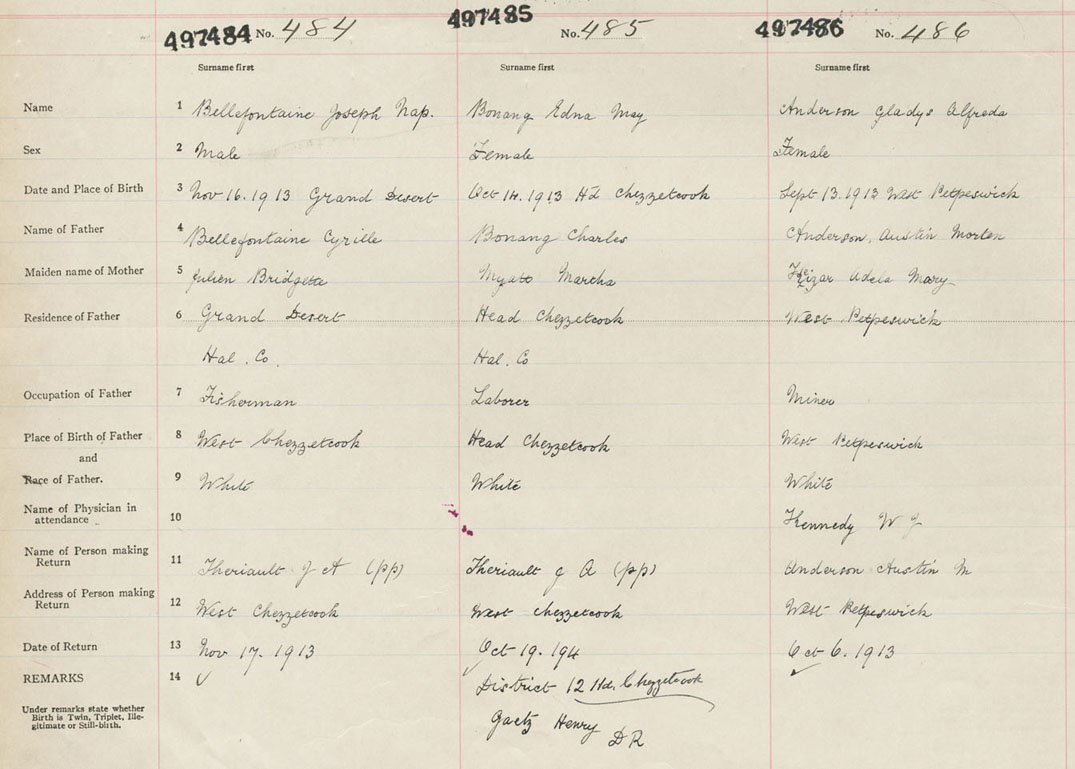 497484 No. 484 497485 No. 485 497486 No. 486
Surname first Surname first Surname first
Name 1 Bellefontaine Joseph Nap. Bonang Edna May Anderson Gladys Alfreda
Sex 2 Male Female Female
Date and Place of Birth 3 Nov 16. 1913 Grand Desert Oct 14. 1913 Hd Chezzetcook Sept 13. 1913 West Petpeswick
Name of Father 4 Bellefontaine Cyrille Bonang Charles Anderson, Austin Morten
Maiden name of Mother 5 Julien Bridgette Myatt Martha Adela Mary
Residence of Father 6 Grand Desert Head Chezzetcook West Petpeswick
Hal. Co. Hal. Co
Occupation of Father 7 Fisherman Laborer Miner
Place of Birth of Father 8 West Chezzetcook Head Chezzetcook West Petpeswick
and
Race of Father. 9 White White White
Name of Physician in
attendance 10 Kennedy W J
Name of Person making
Return 11 Theriault J A (pp) Theriault J A (pp) Anderson Austin M
Address of Person making
Return 12 West Chezzetcook West Chezzetcook West Petpeswick
Date of Return 13 Nov 17. 1913 Oct 19. 194 Oct 6. 1913
REMARKS 14 District 12 Hd. Chezzetcook
Under remarks state whether
Birth is Twin, Triplet, Ille-
gitimate or Still-birth.
Gaetz Henry
D R